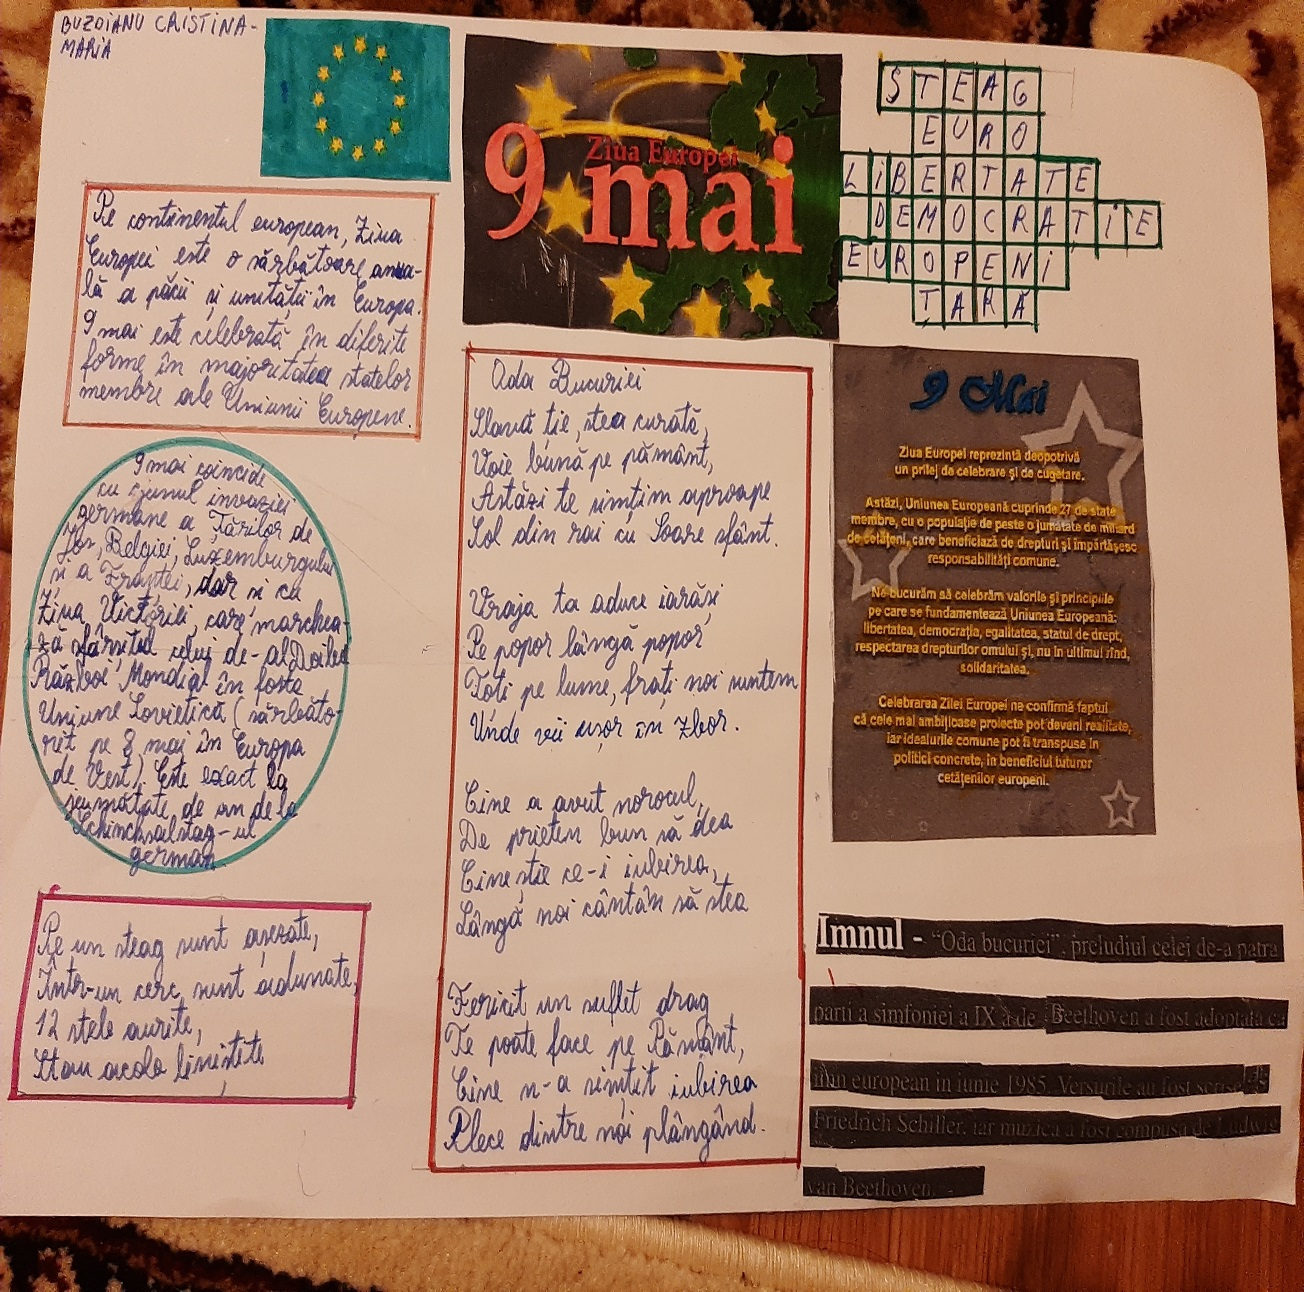 BUZOIANU CRISTINA-
MARIA
9 mai
Ziua Europei
STEAG
EURO
LIBERTATE
DEMOCRATIE
EUROPENI
TARĂ
Pe continentul european, Ziua
Europei este o sărbătoare anua-
lă a păcii și unității în Europa.
9 mai este celebrată în diferite
forme în majoritatea statelor
membre ale Uniunii Europene.
9 mai coincide
cu ziunul invaziei
germane a Țărilor de
Jos, Belgiei, Luxemburgului
și a Franței, dar și cu
Ziua Victoriei, care marchea-
ză sfârșitul celui de-al Doilea
Război Mondial în fosta
Uniune Sovietică (sărbăto-
rit pe 8 mai în Europa
de Vest). Este exact la
jumătate de an de la
german.
Pe un steag sunt așezate,
Într-un cerc sunt adunate,
12 stele aurite,
Stau acolo liniștite
Oda Bucuriei
Slavă ție, stea curată,
Voie bună pe pământ,
Astăzi te simțim aproape
Sol din rai cu Soare sfânt.
Vraja ta aduce iarăși
Pe popor lângă popor
Toti pe lume, frați noi suntem
Unde vii ușor în zbor.
Cine a avut norocul,
De prieten bun să dea
Cine știe ce-i iubirea,
Lângă noi cântân să stea
Fericit un suflet drag
Te poate face pe Pământ,
Cine n-a simțit iubirea
Plece dintre noi plângând.
9 Mai
Ziua Europei reprezintă deopotrivă
un prilej de celebrare și de cugetare.
Astăzi, Uniunea Europeană cuprinde 27 de state
membre, cu o populație de peste o jumătate de miliard
de cetățeni, care beneficiază de drepturi și împărtășesc
responsabilități comune.
Ne bucurăm să celebrăm valorile și principiile
pe care se fundamentează Uniunea Europeană:
libertatea, democrația, egalitatea, statul de drept,
respectarea drepturilor omului și, nu în ultimul rînd,
solidaritatea.
Celebrarea Zilei Europei ne confirmă faptul
că cele mai ambițioase proiecte pot deveni realitate,
iar idealurile comune pot fi transpuse în
politici concrete, în beneficiul tuturor
cetățenilor europeni.
Imnul - "Oda bucuriei", preludiul celei de-a patra
parti a simfoniei a IX a de Beethoven a fost adoptata ca
imn european in iunie 1985. Versurile au fost scrise de
Friedrich Schiller, iar muzica a fost compusa de Ludwig
van Beethoven.